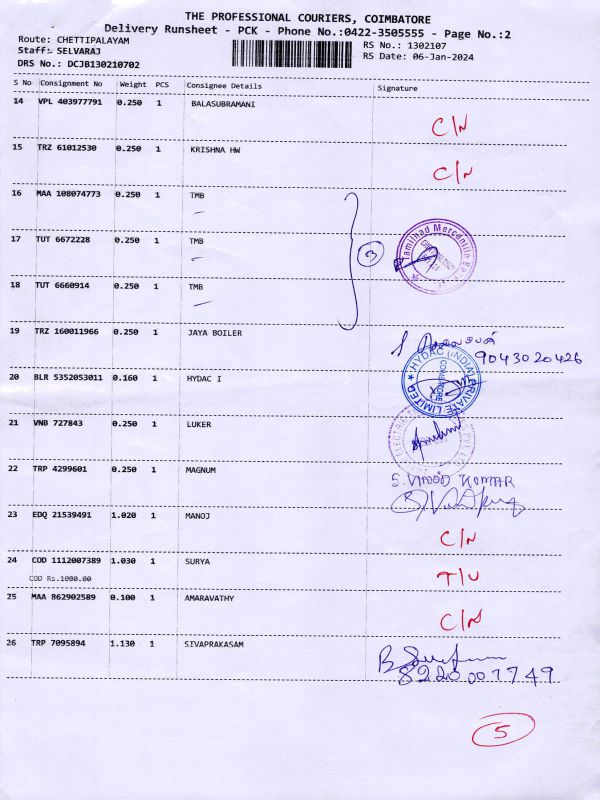 THE PROFESSIONAL COURIERS, COIMBATORE
Delivery Runsheet - PCK - Phone No.:0422-3505555 - Page No.:2
Route: CHETTIPALAYAM
Staff: SELVARAJ
DRS No.: DCJB130210702
RS No.: 1302107
RS Date: 06-Jan-2024
S No Consignment No Weight PCS Consignee Details Signature
14 VPL 403977791 0.250 1 BALASUBRAMANI C/N
15 TRZ 61012530 0.250 1 KRISHNA HW C/N
16 MAA 108074773 0.250 1 TMB
17 TUT 6672228 0.250 1 TMB 3 Tamilnad Mercantile
18 TUT 6660914 0.250 1 TMB
19 TRZ 160011966 0.250 1 JAYA BOILER
9043020426
20 BLR 5352053011 0.160 1 HYDAC I HYDAC (INDIA) PRIVATE LIMITED COIMBATORE
21 VNB 727843 0.250 1 LUKER
22 TRP 4299601 0.250 1 MAGNUM S. VINOD KUMAR
23 EDQ 21539491 1.020 1 MANOJ C/N
24 COD 1112007389 1.030 1 SURYA T/U
COD Rs.1000.00
25 MAA 862902589 0.100 1 AMARAVATHY C/N
26 TRP 7095894 1.130 1 SIVAPRAKASAM
8220007749
5